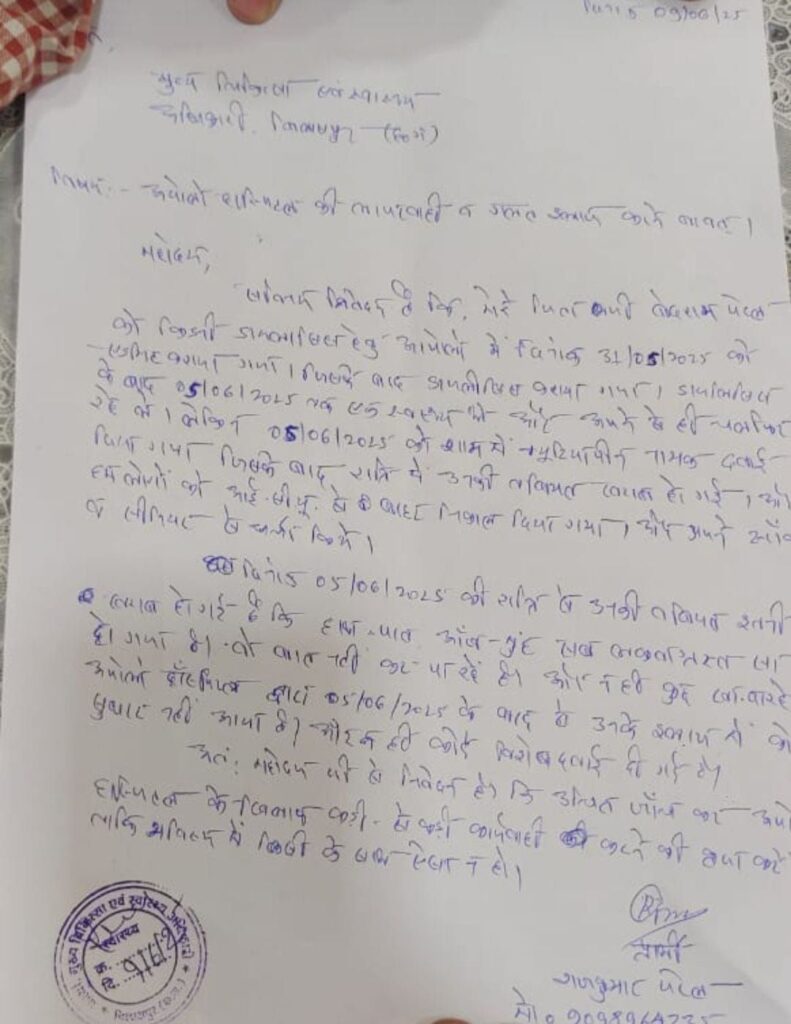 दिनांक 09/06/25
मुख्य चिकित्सा एवं स्वास्थ्य
अधिकारी, बिलासपुर (छ.ग.)
विषय:- अपोलो हास्पिटल की लापरवाही व गलत इलाज करने बाबत।
महोदय,
सविनय निवेदन है कि, मेरे पिता श्री पटेल
को किडनी डायलासिस हेतु अपोलो में दिनांक 31/05/2025 को
एडमिट कराया गया। जिसके बाद डायलीसिस कराया गया। डायलिसिस
के बाद 05/06/2025 तक स्वस्थ्य थे और अपने से ही चल फिर
रहे थे। लेकिन 05/06/2025 को शाम में नामक दवाई
दिया गया जिसके बाद रात्रि में उनकी तबियत खराब हो गई, और
हम लोगों को आई.सी.यू. से बाहर निकाल दिया गया, और अपने
व सीनियर से चर्चा किये।
दिनांक 05/06/2025 की रात्रि से उनकी तबियत इतनी
खराब हो गई है कि हाथ-पांव आँख-मुंह सब लकवाग्रस्त सा
हो गया है। वो बात नहीं कर पा रहे है। और न ही कुछ खा पा रहे
अपोलो हॉस्पिटल द्वारा 05/06/2025 के बाद से उनके इलाज में को
सुधार नहीं आया है। और न ही कोई विशेष दवाई दी गई है।
अतः महोदय जी से निवेदन है। कि उचित जाँच कर अपो
हास्पिटल के खिलाफ कड़ी से कड़ी कार्यवाही करने की कृपा करें
ताकि भविष्य में किसी के साथ ऐसा न हो।
प्रार्थी
राजकुमार पटेल
मो. 9098964235
मुख्य चिकित्सा एवं स्वास्थ्य अधिकारी
स्वास्थ्य
क्र.
दि. 9/6/25
बिलासपुर (छ.ग.)